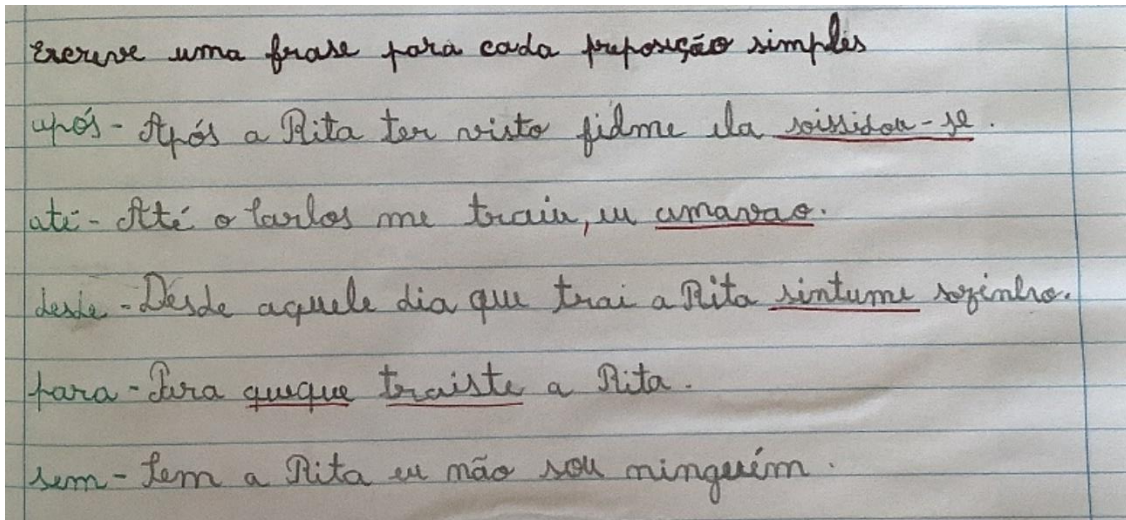 Escreve uma frase para cada preposição simples
após - Após a Rita ter visto fidme ela soissidou-se.
até - Até o Carlos me traiu, eu amavao.
desde - Desde aquele dia que trai a Rita sintume sozinho.
para - Para queque traiste a Rita.
sem - Sem a Rita eu não sou ninguém.